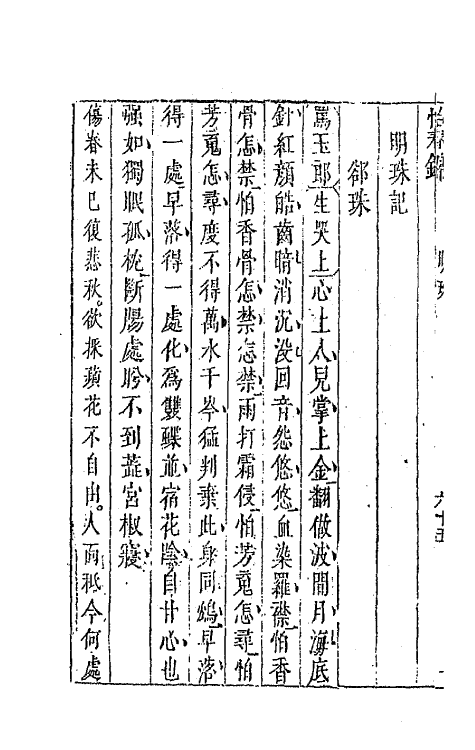 怡春錦　明珠　六十五
明珠記
郤珠
罵玉郎生哭上心上人見掌上金翻做波間月海底
針紅顏皓齒暗消沉没回音怨悠悠血染羅襟怕香
骨怎禁怕香骨怎禁怎禁雨打霜侵怕芳䰟怎尋怕
芳䰟怎尋度不得萬水千岑猛判棄此身同鴆早落
得一處早落得一處化為雙蝶並宿花陰自甘心也
强如獨眠孤枕斷膓處盻不到蕋宮椒寢
傷春未已復悲秋欲採蘋花不自由人面秪今何處